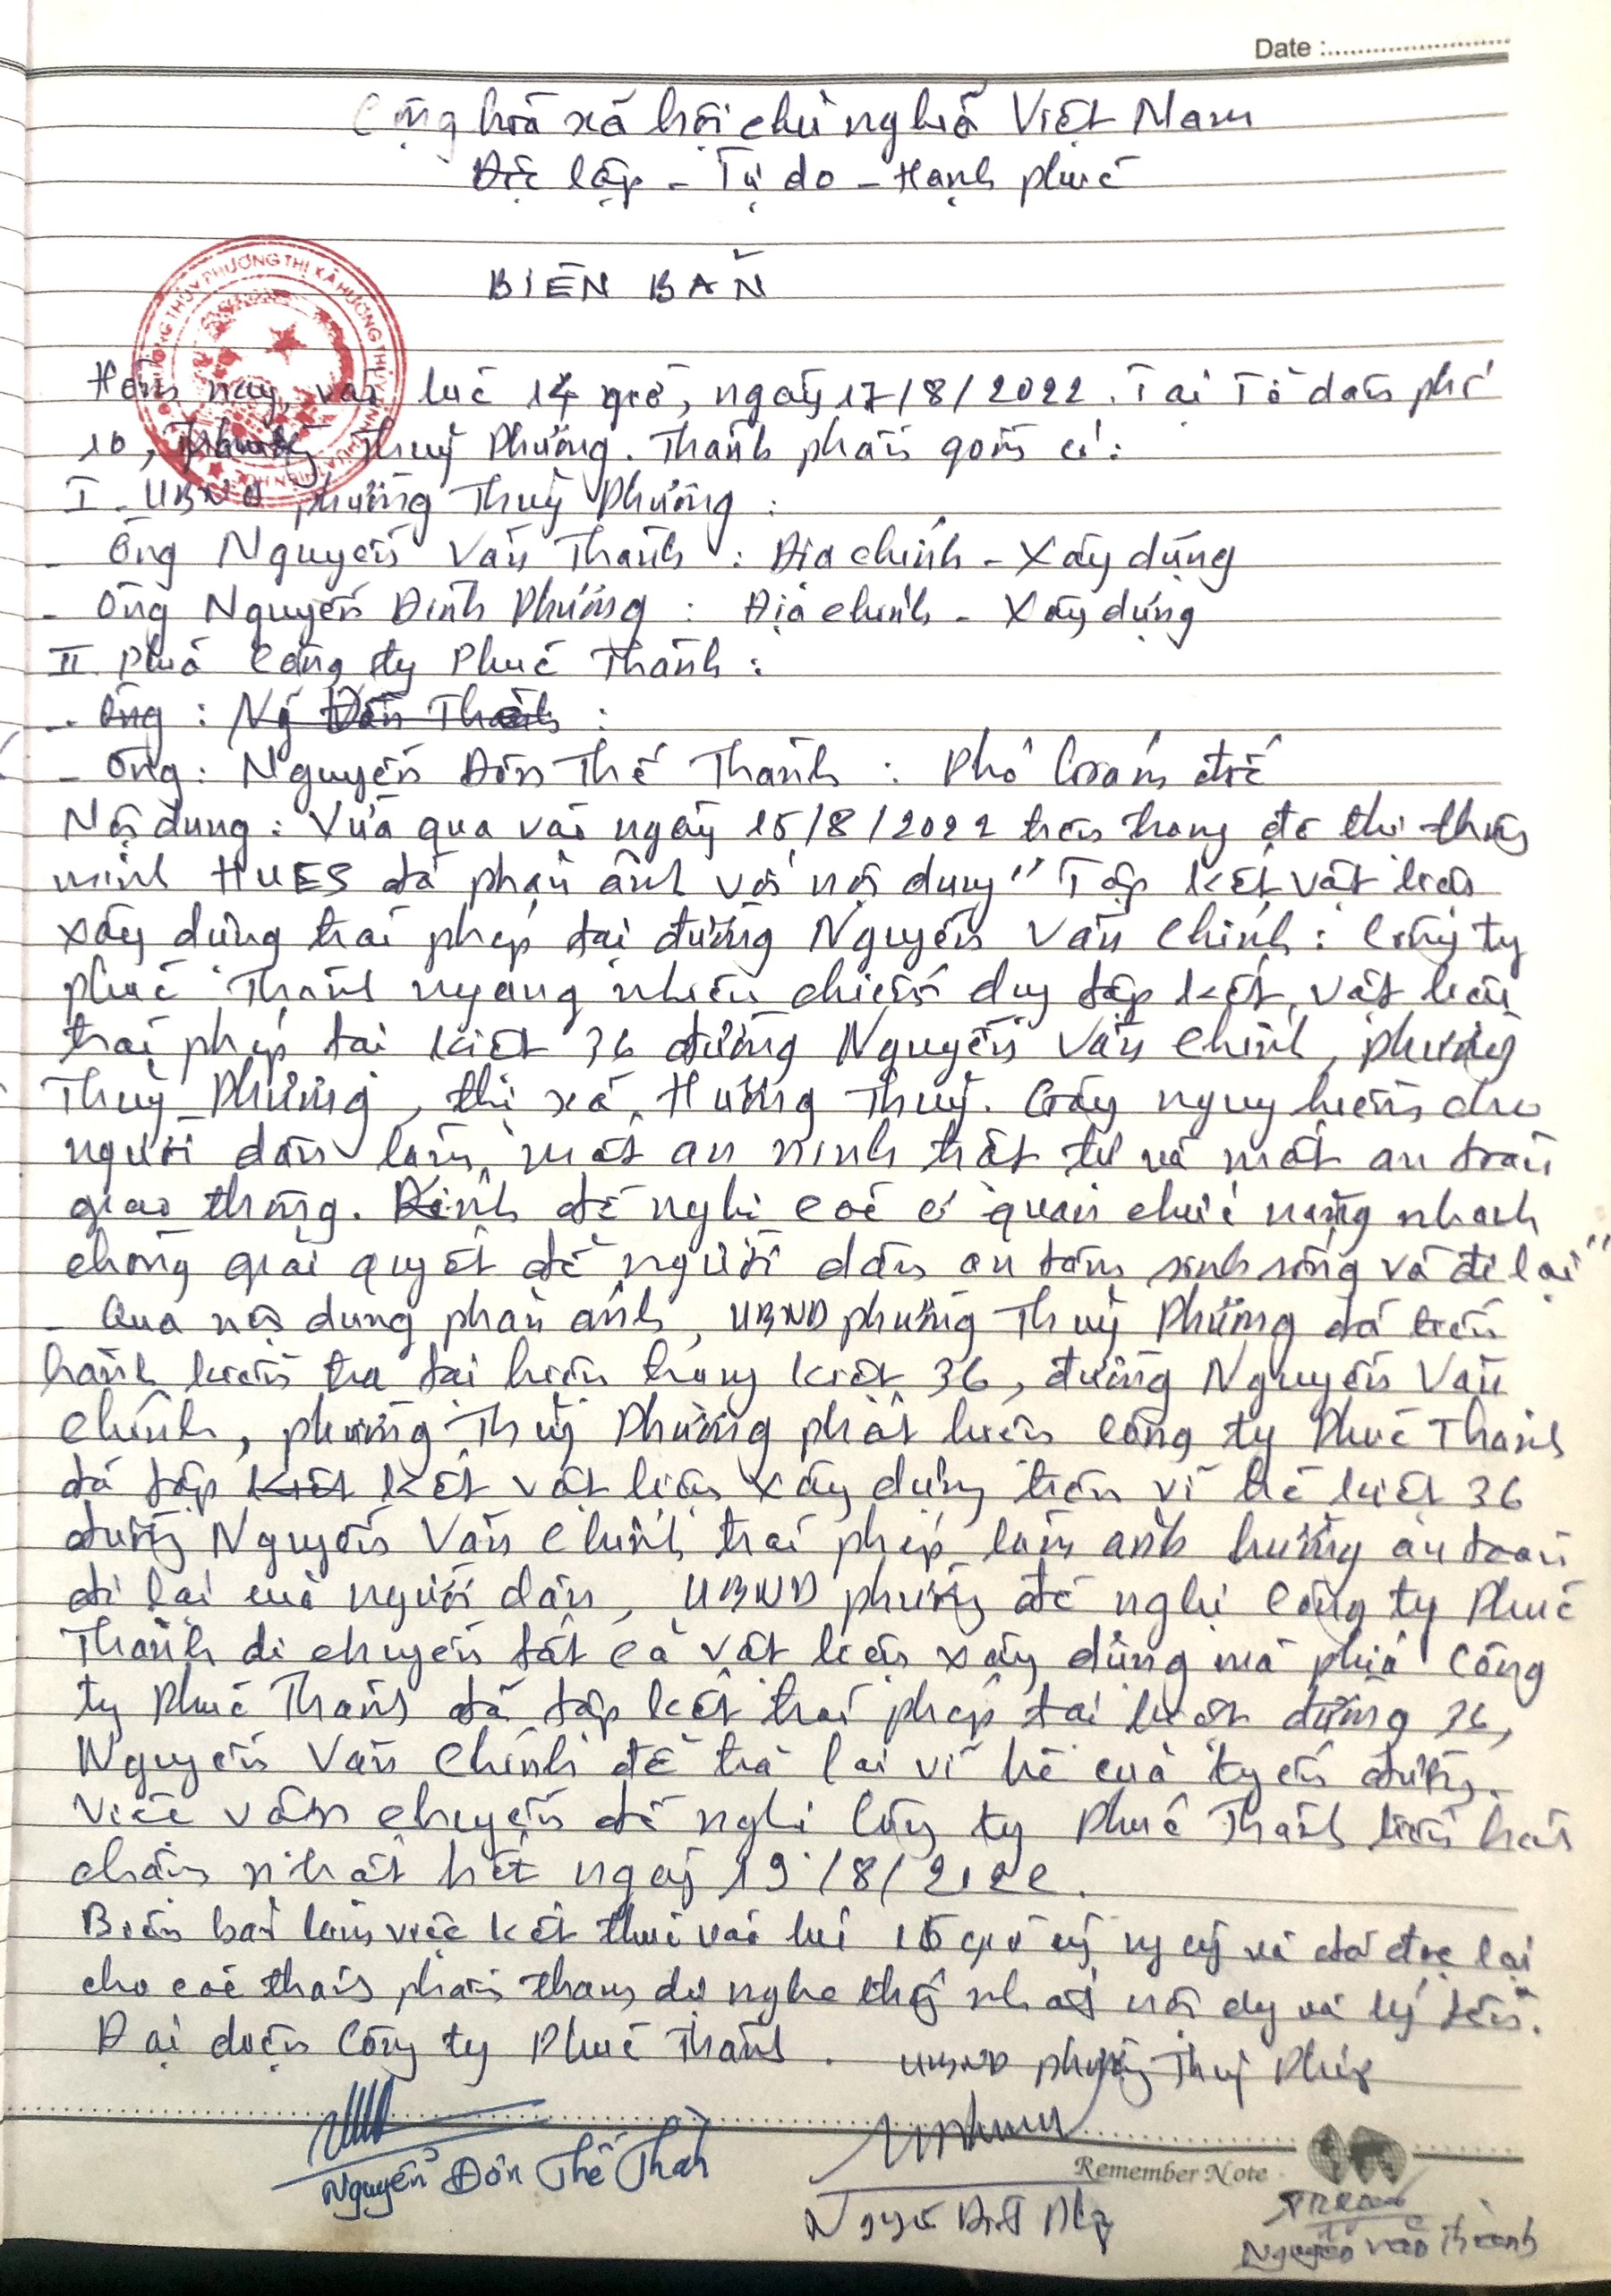 Date :
Cộng hoà xã hội chủ nghĩa Việt Nam
Độc lập - Tự do - Hạnh phúc
BIÊN BẢN
PHƯỜNG THỦY PHƯƠNG THỊ XÃ HƯƠNG THỦY
Hôm nay, vào lúc 14 giờ, ngày 17/8/2022. Tại Tổ dân phố
10, phường Thuỷ Phương. Thành phần gồm có:
I - UBND phường Thuỷ Phương:
- Ông Nguyễn Văn Thành: Địa chính - Xây dựng
- Ông Nguyễn Đình Phương: Địa chính - Xây dựng
II. Phía Công ty Phúc Thành:
- Ông: Ng Đôn Thành:
- Ông: Nguyễn Đôn Thế Thành: Phó Giám đốc
Nội dung: Vừa qua vào ngày 15/8/2022 trên trang đô thị thông
minh HUES đã phản ánh với nội dung "Tập kết vật liệu
xây dựng trái phép tại đường Nguyễn Văn Chính: Công ty
Phúc Thành ngang nhiên chiếm dụng tập kết vật liệu
trái phép tại kiệt 36 đường Nguyễn Văn Chính, phường
Thuỷ Phương, thị xã Hương Thuỷ. Gây nguy hiểm cho
người dân làm mất an ninh trật tự và mất an toàn
giao thông. Kính đề nghị các cơ quan chức năng nhanh
chóng giải quyết để người dân an tâm sinh sống và đi lại"
- Qua nội dung phản ánh, UBND phường Thuỷ Phương đã tiến
hành kiểm tra tại hiện trường kiệt 36, đường Nguyễn Văn
Chính, phường Thuỷ Phương phát hiện Công ty Phúc Thành
đã tập kiết kết vật liệu xây dựng trên vỉ hè kiệt 36
đường Nguyễn Văn Chính trái phép làm ảnh hưởng an toàn
đi lại của người dân, UBND phường đề nghị Công ty Phúc
Thành di chuyển tất cả vật liệu xây dựng mà phía Công
ty Phúc Thành đã tập kết trái phép tại kiệt đường 36,
Nguyễn Văn Chính để trả lại vỉ hè của tuyến đường.
Việc vận chuyển đề nghị Công ty Phúc Thành tiến hành
chậm nhất hết ngày 19/8/2022.
Biên bản làm việc kết thúc vào lúc 15 giờ cùng ngày và đã đọc lại
cho các thành phần tham dự nghe thống nhất nội dung và ký tên.
Đại diện Công ty Phúc Thành. UBND phường Thuỷ Phương
Nguyễn Đôn Thế Thành
Remember Note
Nguyễn Đình Phương
Nguyễn Văn Thành